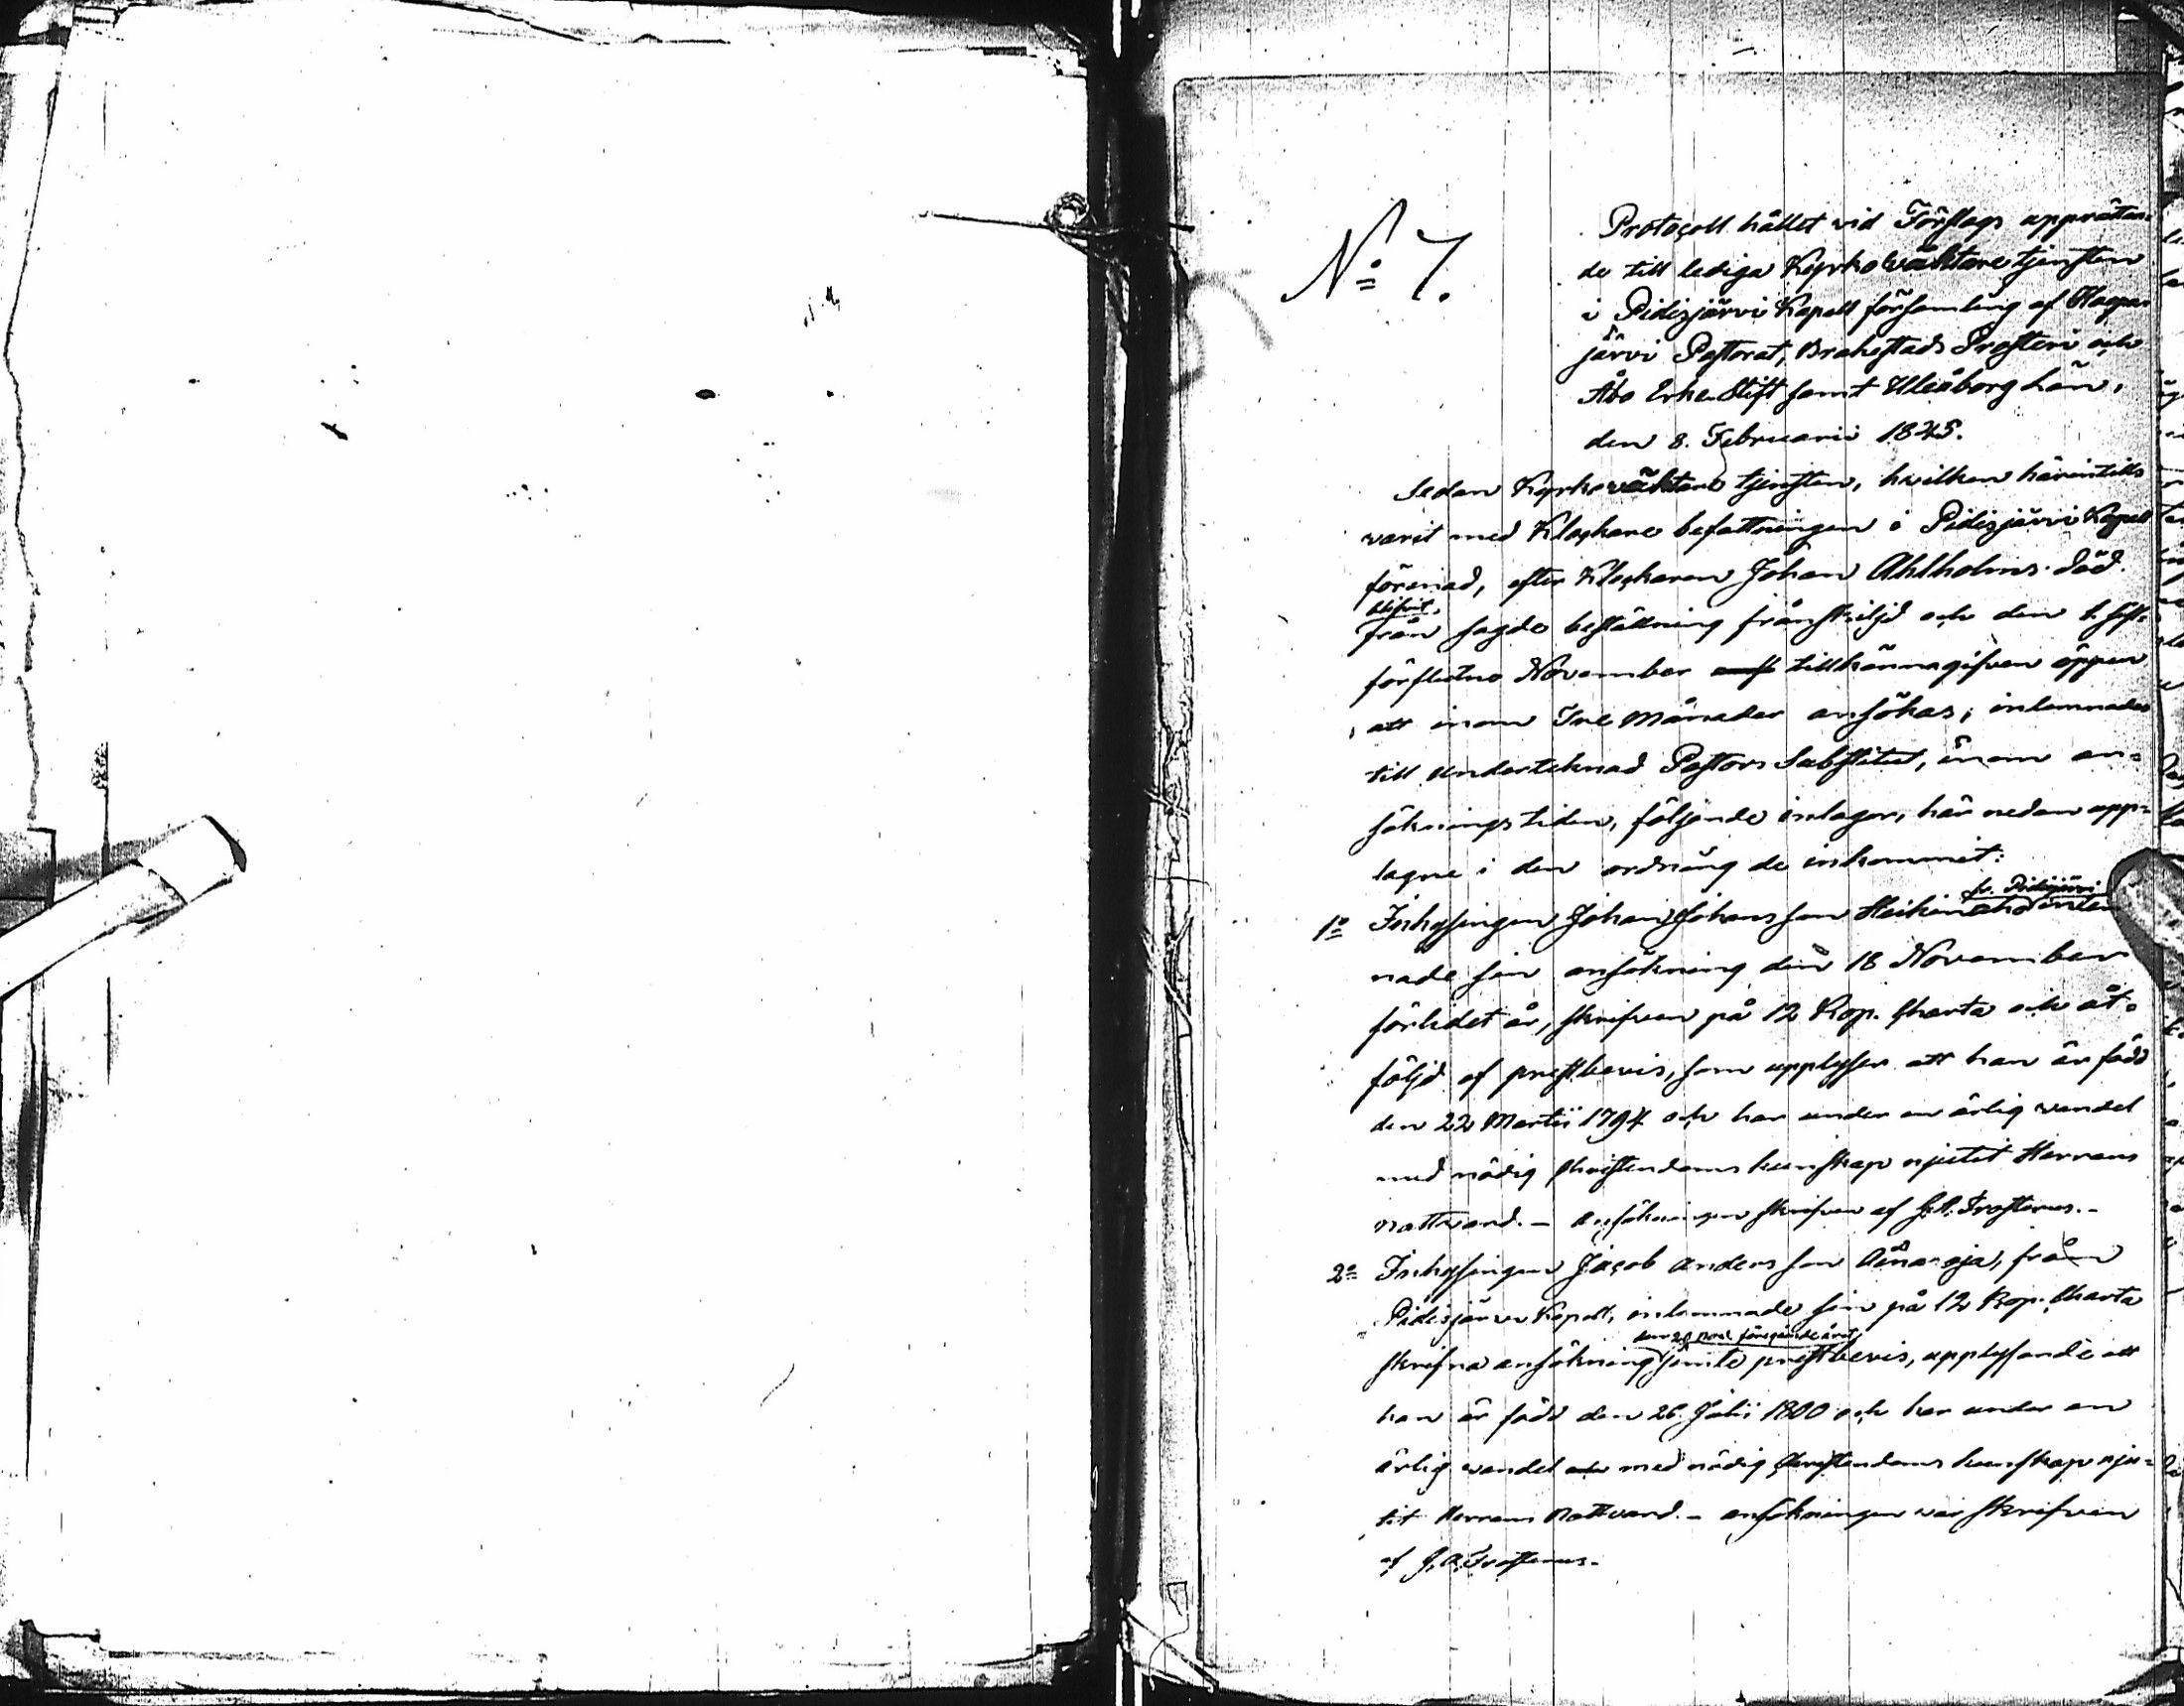 No 7.
Protocoll hållet vid Förslags upprättan-
de till lediga Kyrkoväktare tjensten
i Pidisjärvi Kapell församling af Haapa-
järvi Pastorat, Brahestads Prosteri och
Åbo Erke Stift samt Uleåborg Län,
den 8. Februarii 1845.
Sedan Kyrkoväktare tjensten, hvilken härintills
varit med Klockare befattningen i Pidisjärvi Kapell
förenad, efter Klockaren Johan Ahlholms död
blifvit
från sagde beställning frånskiljd och den
förflutne November tillkännagifven öppen
att inom Tre Månader ansökas; inlemnades
till undertecknad Pastors Substitut, inom an-
sökningstiden, följande inlagor, här nedan upp-
tagne i den ordning de inkommit:
fr. Pidisjärvi
1o Inhysingen Johan Johansson Heikinaho inlem
nade sin ansökning den 18 November
förledet år, skrifven på 12 Kop. Charta och åt-
följd af prestbevis, som upplyser att han är född
den 22 Martii 1794 och har under en ärlig vandel
med nödig Christendoms kunskap njutit Herrans
nattvard. - Ansökningen skrifven af J.A. Frosterus.-
2o Inhysingen Jacob Andersson Ainasoja, från
Pidisjärvi Kapell, inlemnade sin på 12 Kop. Charta
den 28 Nov. föregående året
skrifna ansökning jämte prestbevis, upplysande att
han är född den 26. Julii 1800 och har under en
ärlig vandel och med nödig Christendoms kunskap nju-
tit Herrans Nattvard. - ansökningen var skrifven
af J.A. Frosterus.-